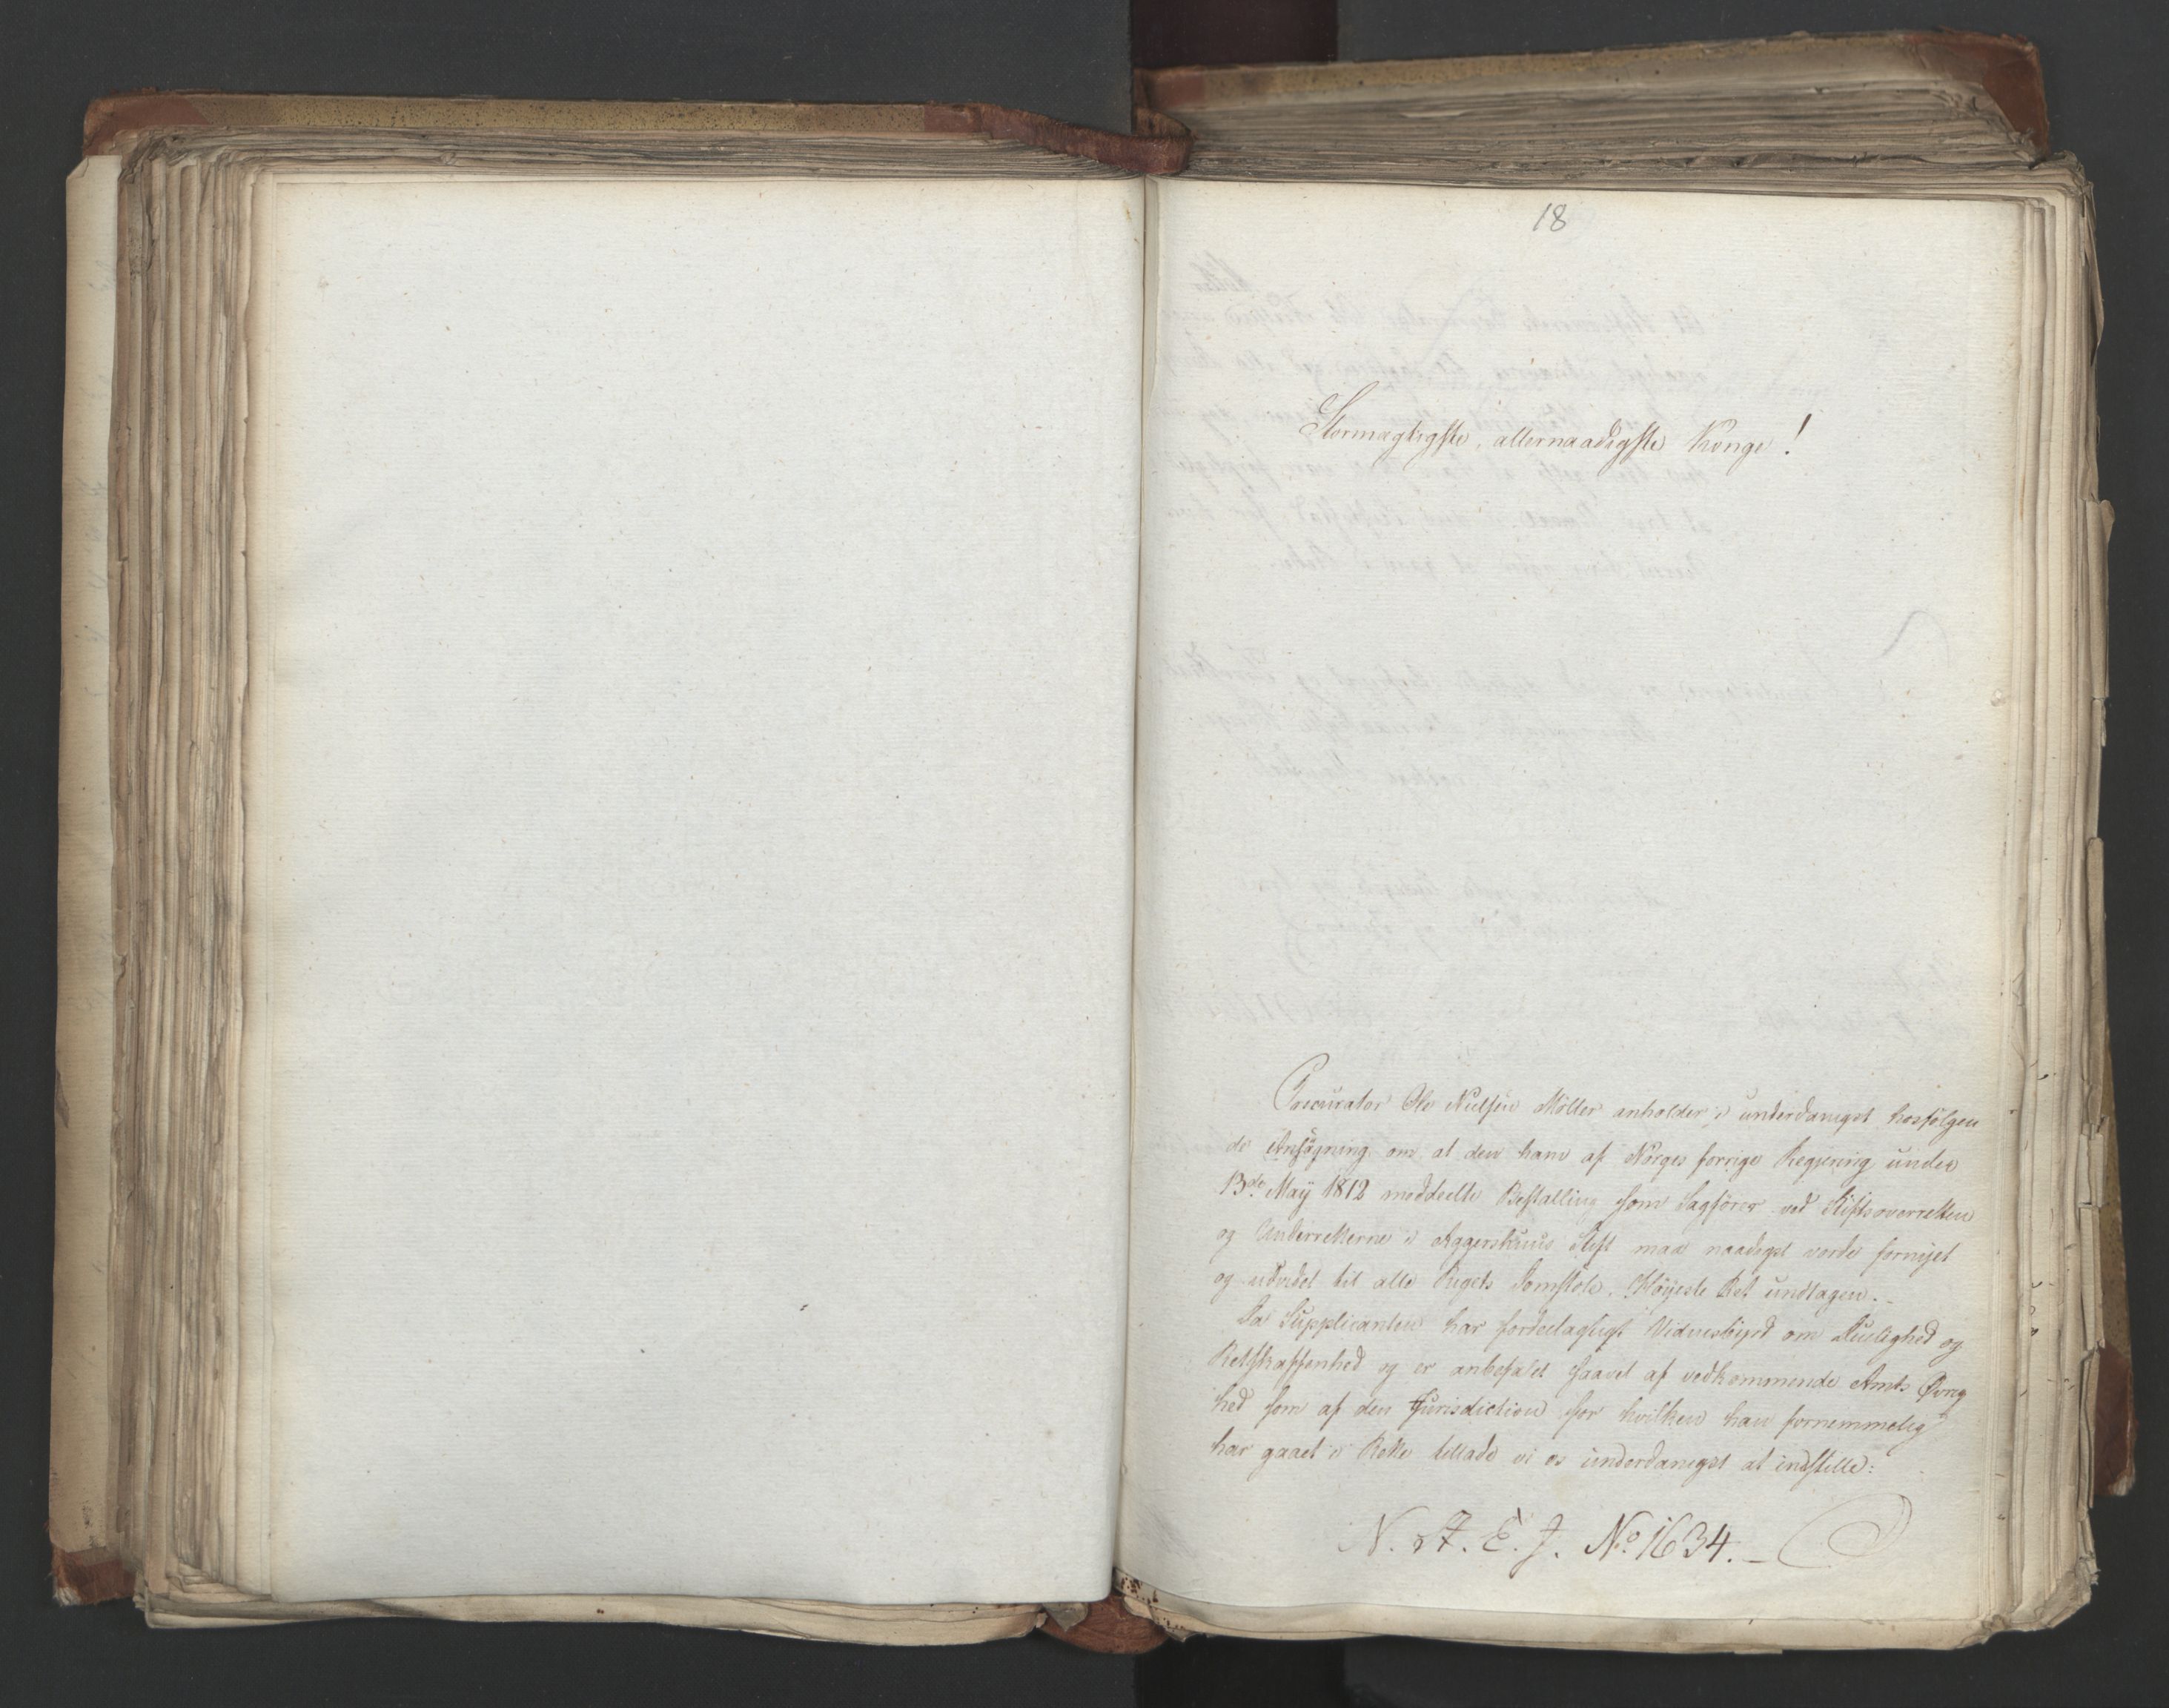 18
Stormægtigste, allernaadigste Konge!
Procurator Ole Nielsen Møller anholder i underdanigst hosfølgen
de Ansøgning om at den ham af Norges forrige Regjering under
13de May 1812 meddeelte Bestalling som Sagfører ved Stiftsoverretten
og Underretterne i Aggershuus Stift maa naadigst vorde fornyet
og udvidet til alle Rigets Domstole, Høyeste Ret undtagen.
Da Supplicanten har fordeelagtigt Vidnesbyrd om Duelighed og
Retskaffenhed og er anbefalet saavel af vedkommende Amts Øvrig
hed som af den Jurisdiction for hvilken han fornemmelig
har gaaet i Rette tillade vi os underdanigst at indstille:
N. A. E. J. No 1634.